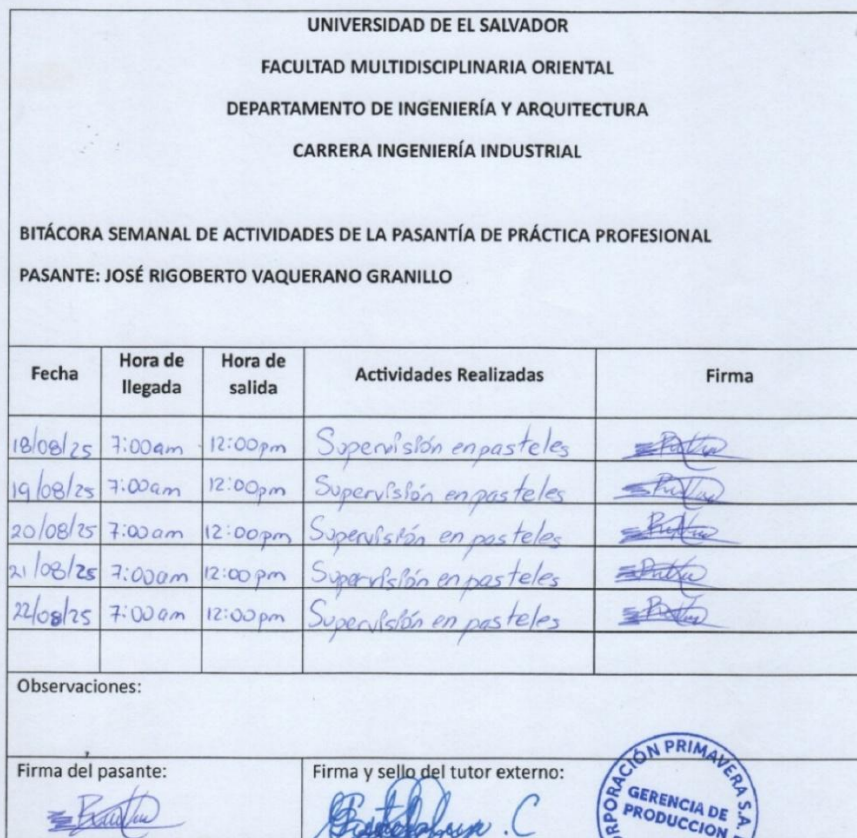 UNIVERSIDAD DE EL SALVADOR
FACULTAD MULTIDISCIPLINARIA ORIENTAL
DEPARTAMENTO DE INGENIERÍA Y ARQUITECTURA
CARRERA INGENIERÍA INDUSTRIAL
BITÁCORA SEMANAL DE ACTIVIDADES DE LA PASANTÍA DE PRÁCTICA PROFESIONAL
PASANTE: JOSÉ RIGOBERTO VAQUERANO GRANILLO
Fecha Hora de llegada Hora de salida Actividades Realizadas Firma
18/08/25 7:00am 12:00pm Supervisión en pasteles
19/08/25 7:00am 12:00pm Supervisión en pasteles
20/08/25 7:00am 12:00pm Supervisión en pasteles
21/08/25 7:00am 12:00pm Supervisión en pasteles
22/08/25 7:00am 12:00pm Supervisión en pasteles
Observaciones:
Firma del pasante: Firma y sello del tutor externo:
PRIMAVERA S.A.
GERENCIA DE
PRODUCCION